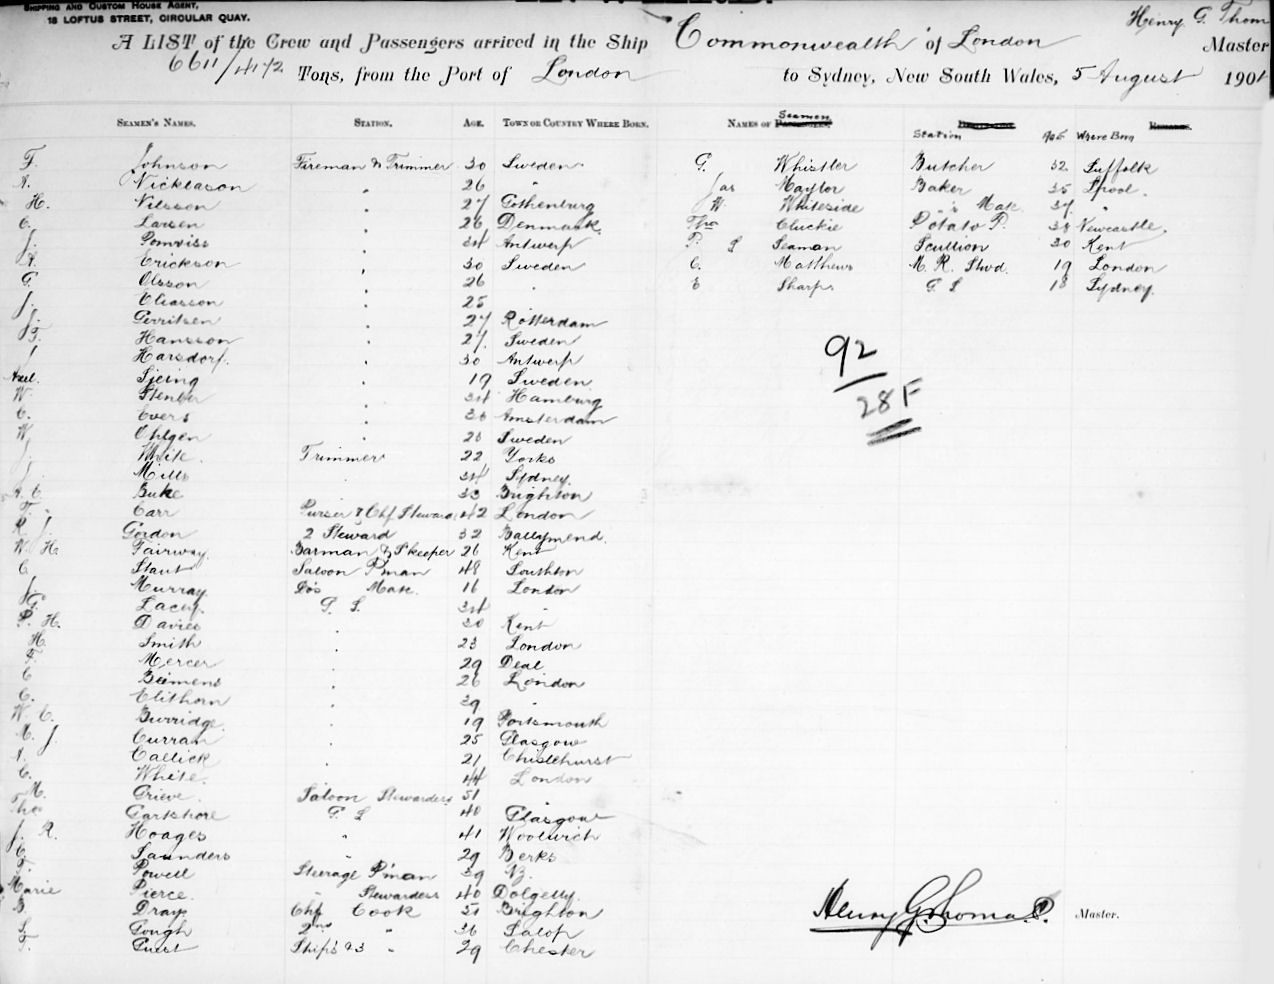 SHIPPING AND CUSTOM HOUSE AGENT,
18 LOFTUS STREET, CIRCULAR QUAY.
Henry G. Thom
A LIST of the Crew and Passengers arrived in the Ship Commonwealth of London Master
6611/4172 Tons, from the Port of London to Sydney, New South Wales, 5 August 190
SEAMEN'S NAMES. STATION. AGE. TOWN OR COUNTRY WHERE BORN. NAMES OF Seamen Station Age Where Born
F. Johnson Fireman & Trimmer 30 Sweden G. Whistler Butcher 32 Suffolk
A. Nicklason " 26 " Jas Naylor Baker 35 Lpool.
H. Nilsson " 27 Gothenburg W. Whiteside " 's Mate 37 "
C. Larsen " 26 Denmark. Thos Cluckie Potato P. 38 Newcastle.
J. " 34 Antwerp P. L Seaman Scullion 30 Kent
A. Erickson " 30 Sweden C. Matthews M. R. Stwd. 19 London
G. Olsson " 26 " E Sharps G. S 18 Sydney.
J. Eliasson " 25
J. Gerritsen " 27 Rotterdam
F. Hansson " 27. Sweden
J Harsdorf. " 30 Antwerp
92
Axel. Sjering " 19 Sweden
28 F
W. Stenber " 34 Hamburg
C. Evers " 36 Amsterdam
W. Ohlgen " 23 Sweden
J. White. Trimmer 22 Yorks
J. Mills " 34 Sydney.
A. C. Buke 33 Brighton
F. Carr Purser & Chf. Steward. 42 London
R. J. Gordon 2 Steward 32 Ballymend.
W. H. Fairway. Barman & S'keeper 26 Kent
C Staut Saloon P'man 48 Southton
J. Murray. Do's Mate. 16 London
G. Lacey. G. S. 34 "
P. H. Davies " 30 Kent
H. Smith " 23 London
F. Mercer " 29 Deal
C Biemens " 26 London
C. Clithorn " 39 "
W. C. Burridge. " 19 Portsmouth
M. J. Curran " 25 Glasgow
A. Callick " 21 Chislehurst
C. White. 44 London
M. Grieve. Saloon Stewardess 51 "
Thos Gartshore G. S 40 Glasgow
J. R. Hoages " 41 Woolwich
C. Saunders " 29 Berks
F. Powell Steerage P'man 39 N.Z.
Marie Pierce. " Stewardess 40 Dolgelly.
B. Drays Chf Cook 51 Brighton
Henry G. Thomas. Master.
S. Gough 2nd " 36 Salop
F. Guest Ship's & 3 " 29 Chester